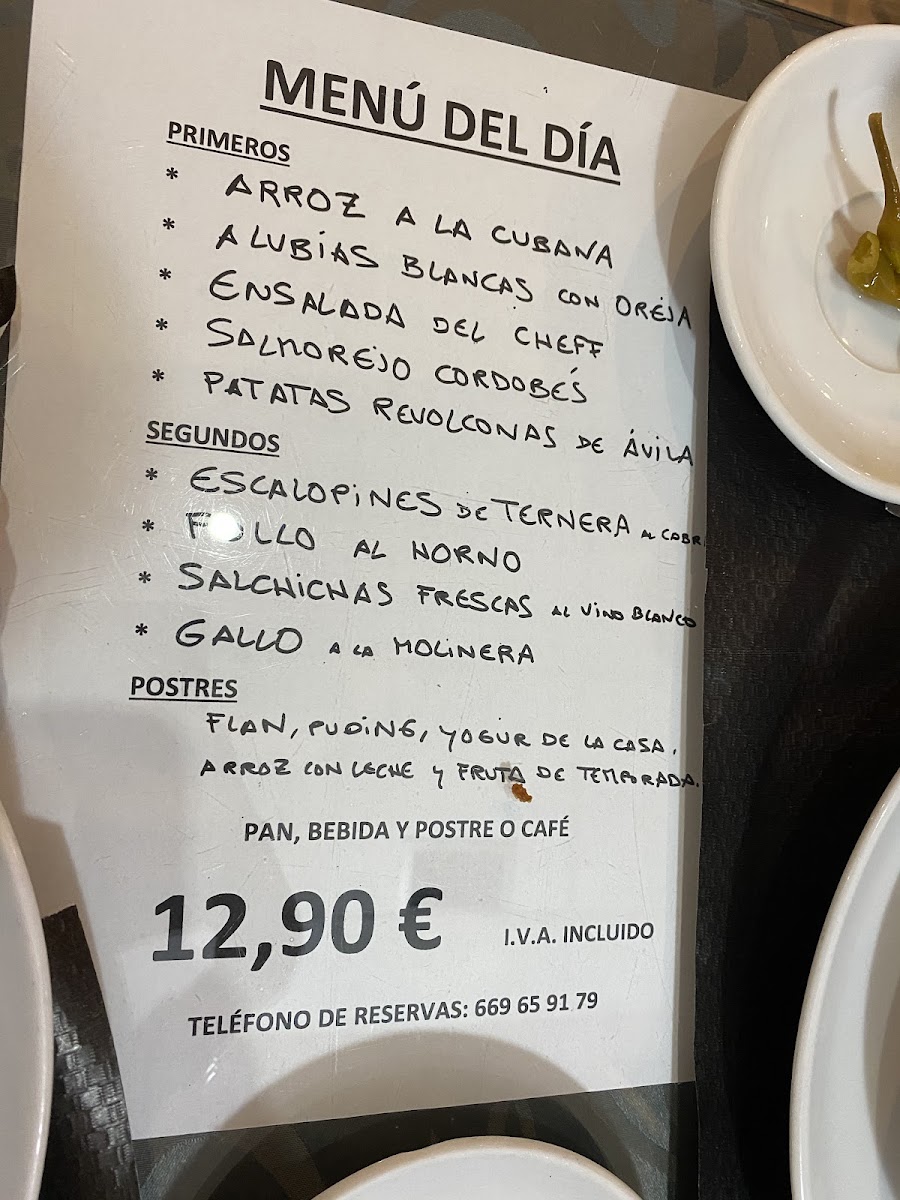 MENÚ DEL DÍA
PRIMEROS
* ARROZ A LA CUBANA
* ALUBIAS BLANCAS CON OREJA
* ENSALADA DEL CHEFF
* SALMOREJO CORDOBÉS
* PATATAS REVOLCONAS DE ÁVILA
SEGUNDOS
* ESCALOPINES DE TERNERA AL CABR
* POLLO AL HORNO
* SALCHICHAS FRESCAS AL VINO BLANCO
* GALLO A LA MOLINERA
POSTRES
FLAN, PUDING, YOGUR DE LA CASA,
ARROZ CON LECHE Y FRUTA DE TEMPORADA.
PAN, BEBIDA Y POSTRE O CAFÉ
12,90 € I.V.A. INCLUIDO
TELÉFONO DE RESERVAS: 669 65 91 79